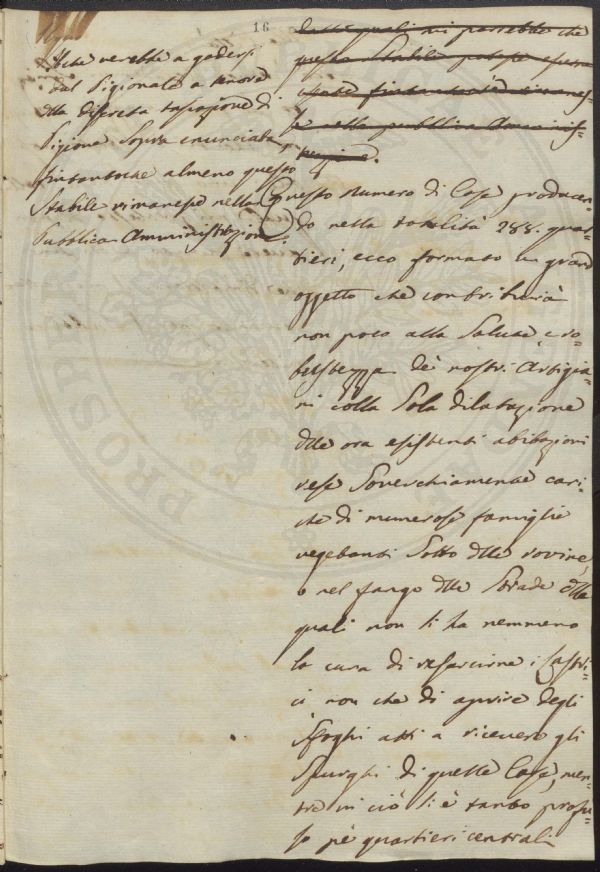 16
Il che verrebbe a godersi
dal Pigionale a tenore
dlla discreta tassazione di
Pigione Sopra enunciata,
fintantoche almeno questo
Stabile rimanesse nella
Pubblica Amministrazione.
dalle quali mi parrebbe che
questo Stabile potesse essere
fintantoche rimanes=
se nella pubblica Amminis=
trazione.
Questo Numero di Case producen=
do nella totalità 288. quar=
tieri, ecco formato un grand
oggetto che contribuirà
non poco alla Salute, e ro=
bustezza de' nostri Artigia=
ni colla Sola dilatazione
dlle ora esistenti abitazioni
rese Soverchiamente cari=
che di numerose famiglie
vegetanti Sotto dlle rovine,
o nel fango dlle Strade dlle
quali non Si ha nemmeno
la cura di resarcirne i Lastri=
ci non che di aprire degli
Sfoghi atti a ricevere gli
Spurghi di quelle Case, men=
tre in ciò Si è tanto profu=
so pe' quartieri centrali
PROSPERI